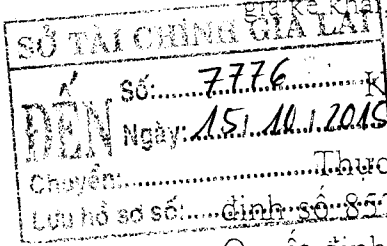 giá kê khai
SỞ TÀI CHÍNH GIA LAI
ĐẾN
Số: 7776
K
Ngày: 15/10/2015
Chuyển:
Thực
Lưu hồ sơ số:
định số 85
Quyết định